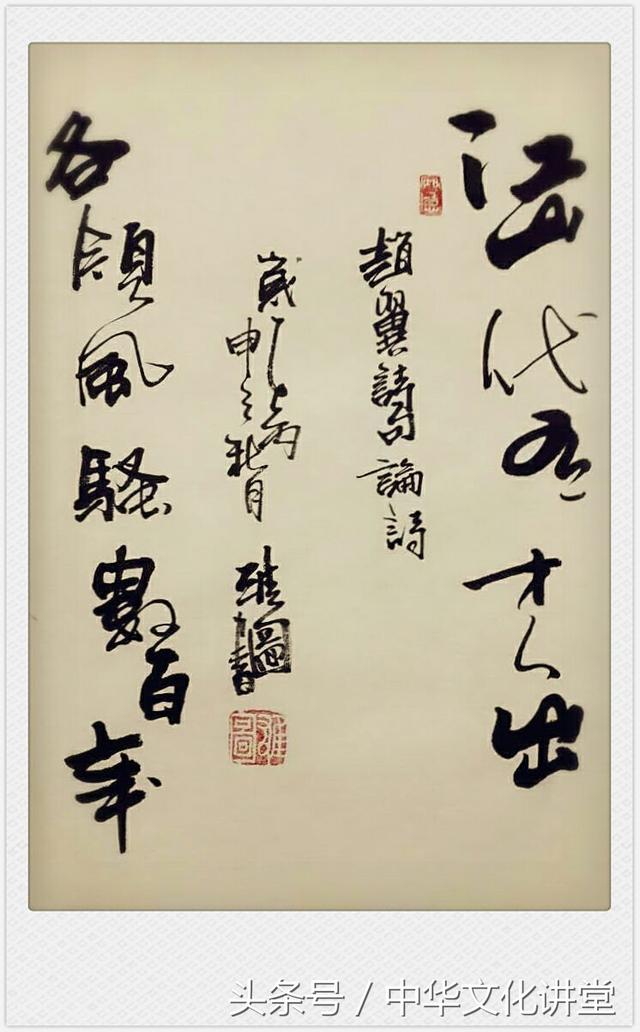 江山代有才人出
趙翼詩句論詩
歲丙申之秋月 雄圖書
雄圖
各領風騷數百年
头条号 / 中华文化讲堂